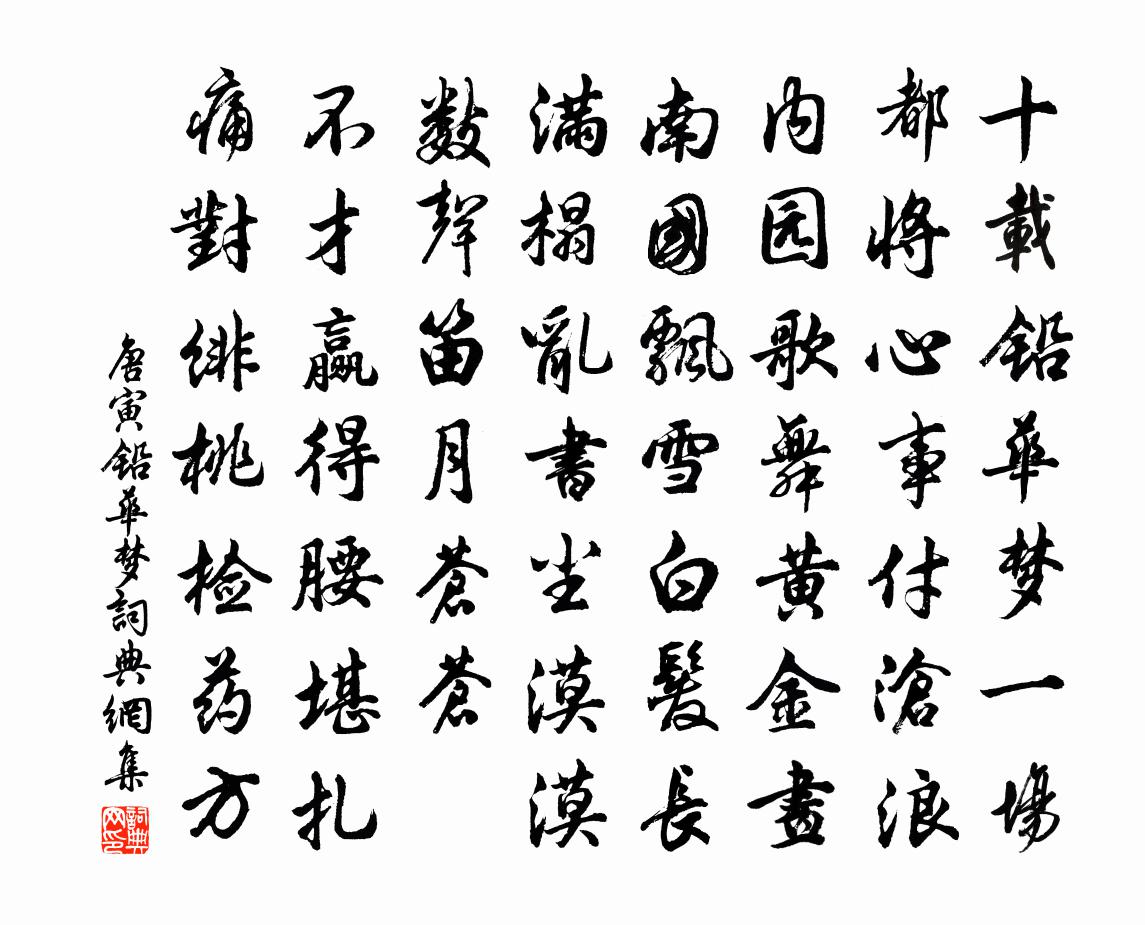 十載鉛華梦一場
都將心事付滄浪
内园歌舞黄金盡
南國飄雪白髮長
滿榻亂書尘漠漠
数聲笛月蒼蒼
不才贏得腰堪扎
痛對緋桃檢药方
唐寅鉛華梦詞典網集
詞典网印